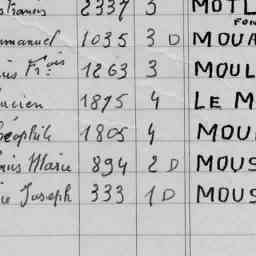 François 2337 3 MOTL
FON
mmanuel 1035 3 D MOUA
uis Fr.ois 1263 3 MOUL
ucien 1875 4 LE M
héophile 1805 4 MOU
ouis Marie 894 2 D MOUS
ie Joseph 333 1 D MOUS